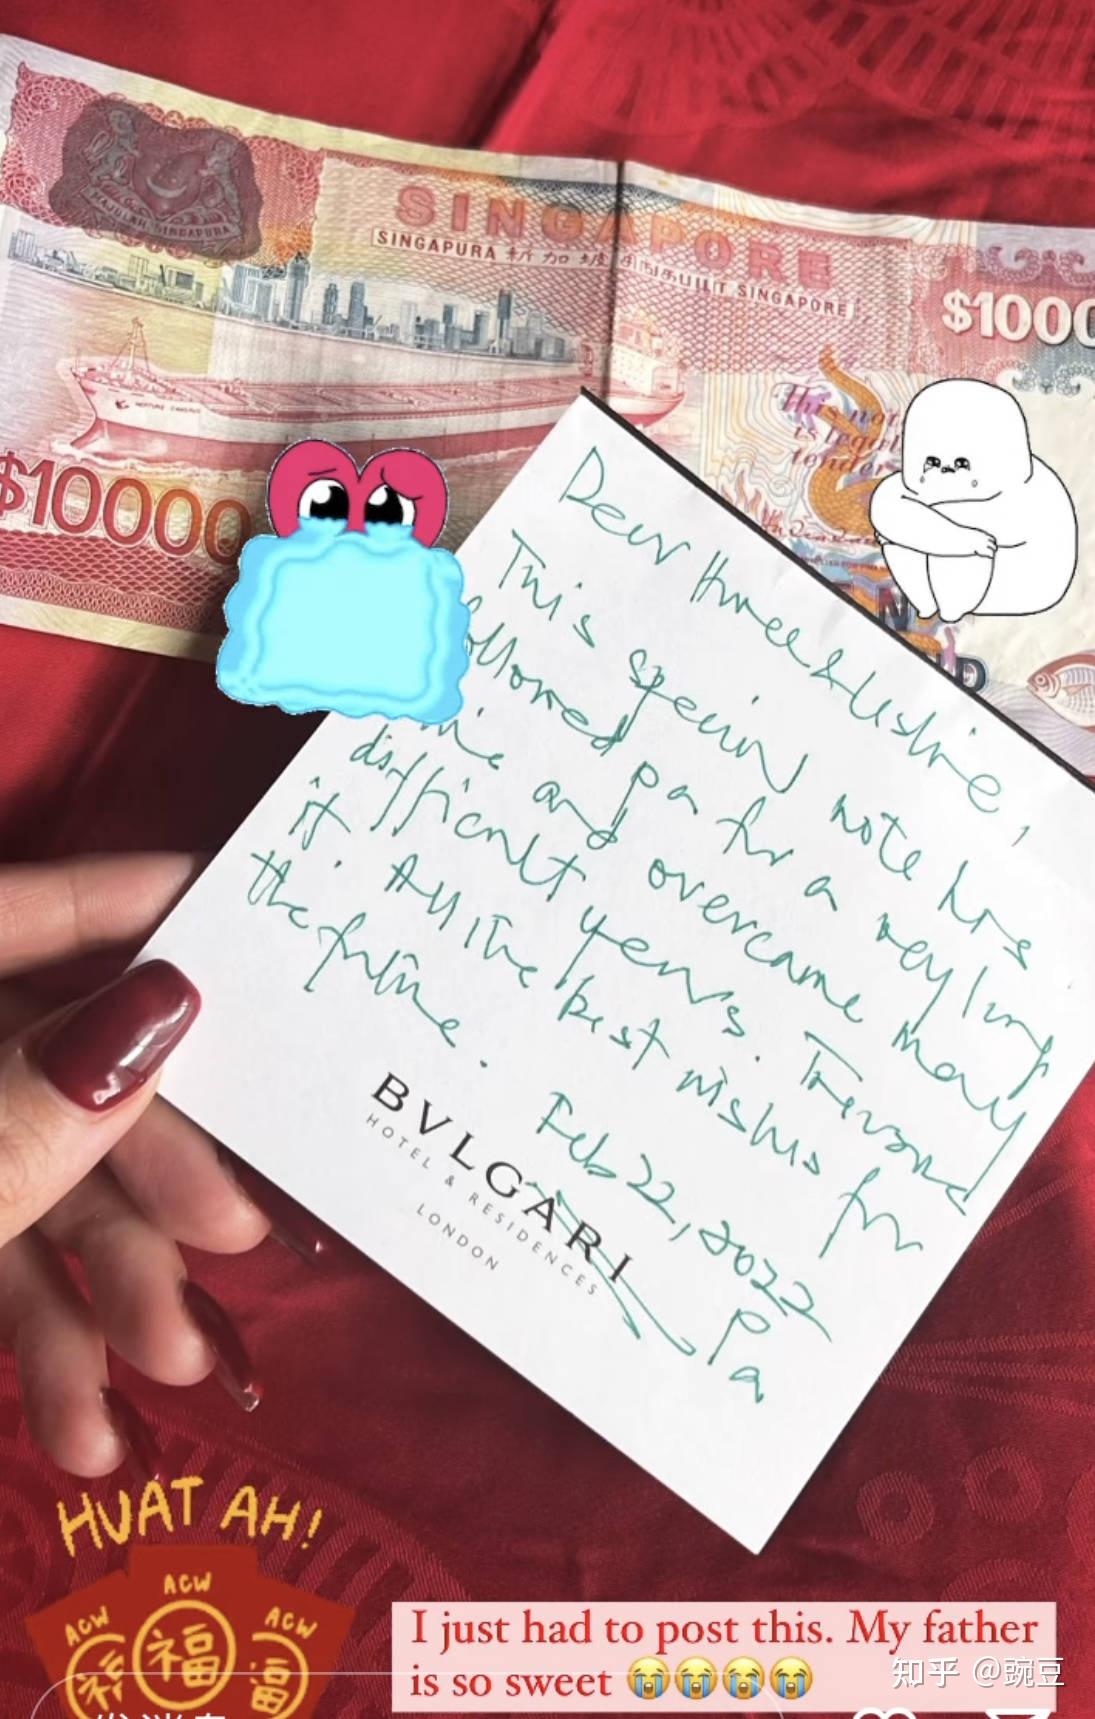 MAJULAH SINGAPURA
SINGAPORE
SINGAPURA 新加坡 சிங்கப்பூர் SINGAPORE
$1000
This note
is legal
tender
$10000
ND
Dear &
This special note has
followed pa for a very long
time and overcame many
difficult years. Treasured
it. All the best wishes for
the future.
Feb 22, 2022
Pa
BVLGARI
HOTEL & RESIDENCES
LONDON
HUAT AH!
ACW
ACW
ACW
福
福
I just had to post this. My father
is so sweet 😭😭😭😭
知乎 @豌豆
发消息